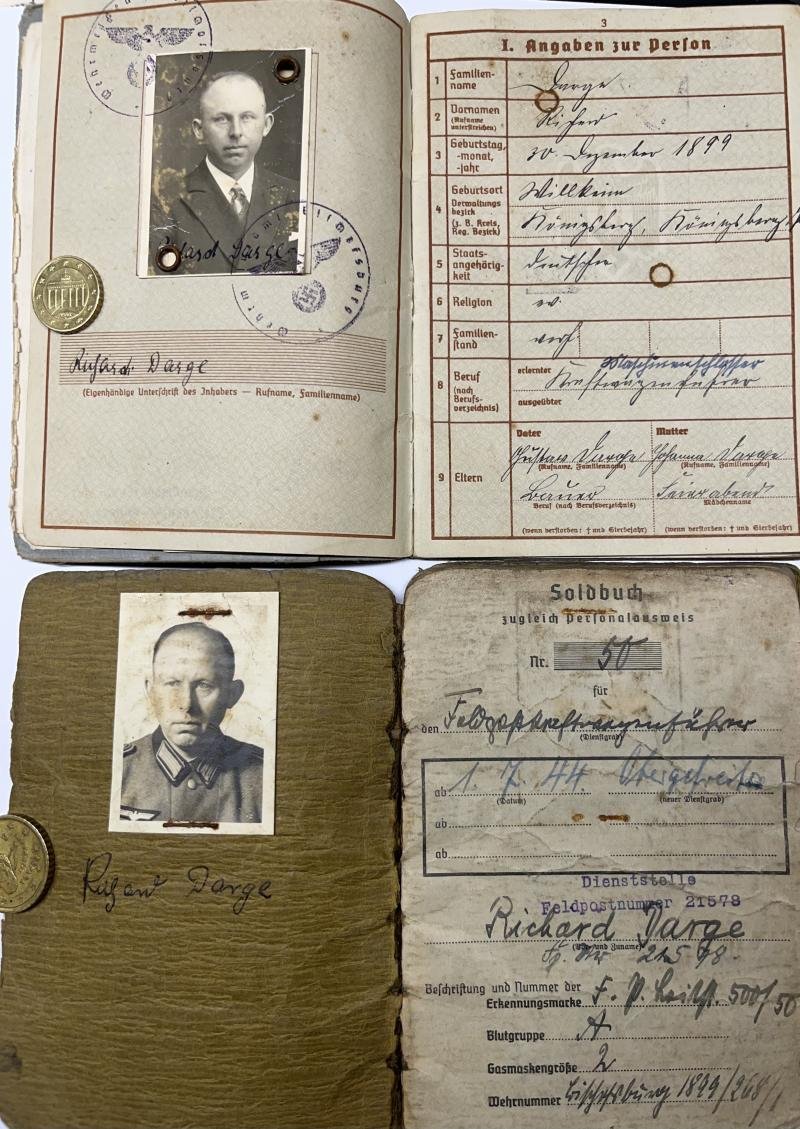 3
I. Angaben zur Person
1 Familien-
name
Darge
2 Vornamen
(Rufname
unterstreichen)
Richard
3 Geburtstag,
-monat,
-jahr
30. Dezember 1899
4 Geburtsort
Verwaltungs
bezirk
(z. B. Kreis,
Reg. Bezirk)
Willkeim
Königsberg, Königsberg
5 Staats-
angehörig-
keit
deutscher
6 Religion
ev.
7 Familien-
stand
verh.
8 Beruf
(nach
Berufs-
verzeichnis)
erlernter
Maschinenschlosser
Kraftwagenführer
ausgeübter
9 Eltern
Vater
Mutter
Gustav Darge
Johanna Darge
(Rufname, Familienname)
(Rufname, Familienname)
Bauer
Feierabend
Beruf (nach Berufsverzeichnis)
Mädchenname
(wenn verstorben: † und Sterbejahr)
(wenn verstorben: † und Sterbejahr)
Richard Darge
Richard Darge
(Eigenhändige Unterschrift des Inhabers — Rufname, Familienname)
Richard Darge
Soldbuch
zugleich Personalausweis
Nr. 50
für
den Feldpostkraftwagenführer
(Dienstgrad)
ab 1. 7. 44. Obergefreiter
(Datum)
(neuer Dienstgrad)
ab
ab
Dienststelle
Feldpostnummer 21578
Richard Darge
(Vor- und Zuname)
Beschriftung und Nummer der
Erkennungsmarke F. P. 500/50
Blutgruppe A
Gasmaskengröße 2
Wehrnummer Bischofsburg 1899/268/1